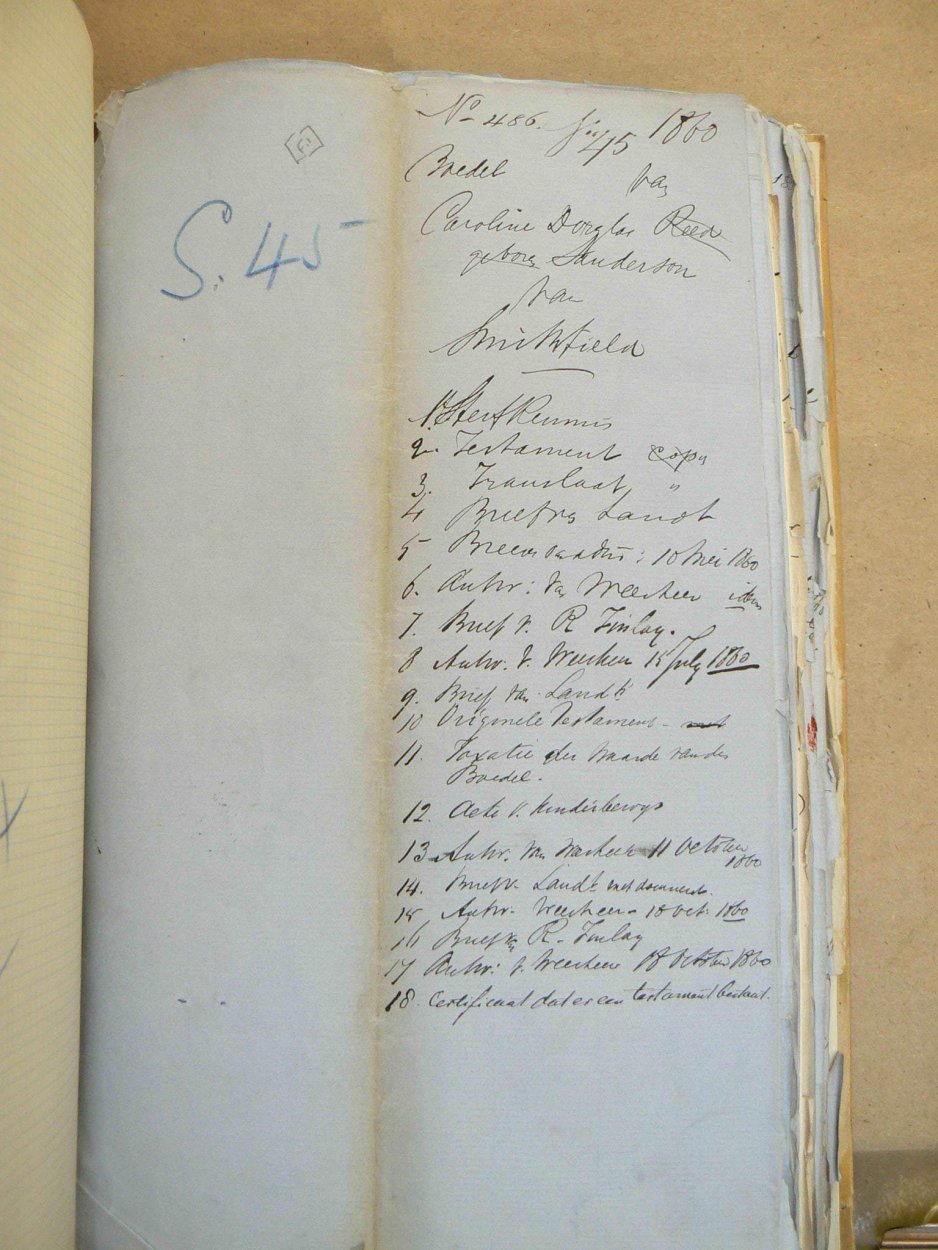 S. 45
No 486. 45 1860
Boedel van
Caroline Douglas Reed
geboren Sanderson
van
Smithfield
1. Sterfkennis
2. Testament copy
3. Translaat "
4 Brief van Landt
5 10 Mei 1860
6. Antw: van Weesheer idem
7. Brief v. R Finlay.
8 Antw. v. Weesheer 15 July 1860
9. Brief van Landt
10 Originele Testament -
11. Taxatie der Waarde van den
Boedel.
12. Acte v. Kinderbewys
13 Antw. van Weesheer 11 October
1860
14. Brief v. Landt met documents.
15 Antw. Weesheer 18 Oct. 1860
16 Brief van R. Finlay
17 Antw: v. Weesheer 18 October 1860
18. Certificaat dat er een testament bestaat.